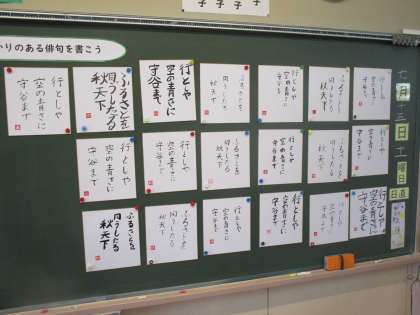 かりのある俳句を書こう
行としや
空の青さに
守谷まで
ふるさとを
同うしたる
秋天下
行としや
空の青さに
守谷まで
ふるさとを
同うしたる
秋天下
行としや
空の青さに
守谷まで
ふるさとを
同うしたる
秋天下
行としや
空の青さに
守谷まで
行としや
空の青さに
守谷まで
行としや
空の青さに
守谷まで
ふるさとを
同うしたる
秋天下
行としや
空の青さに
守谷まで
ふるさとを
同うしたる
秋天下
行としや
空の青さに
守谷まで
ふるさとを
同うしたる
秋天下
ふるさとを
同うしたる
秋天下
行としや
空の青さに
守谷まで
行としや
空の青さに
守谷まで
行としや
空の青さに
守谷まで
行としや
空の青さに
守谷まで
七月三日土曜日
日直